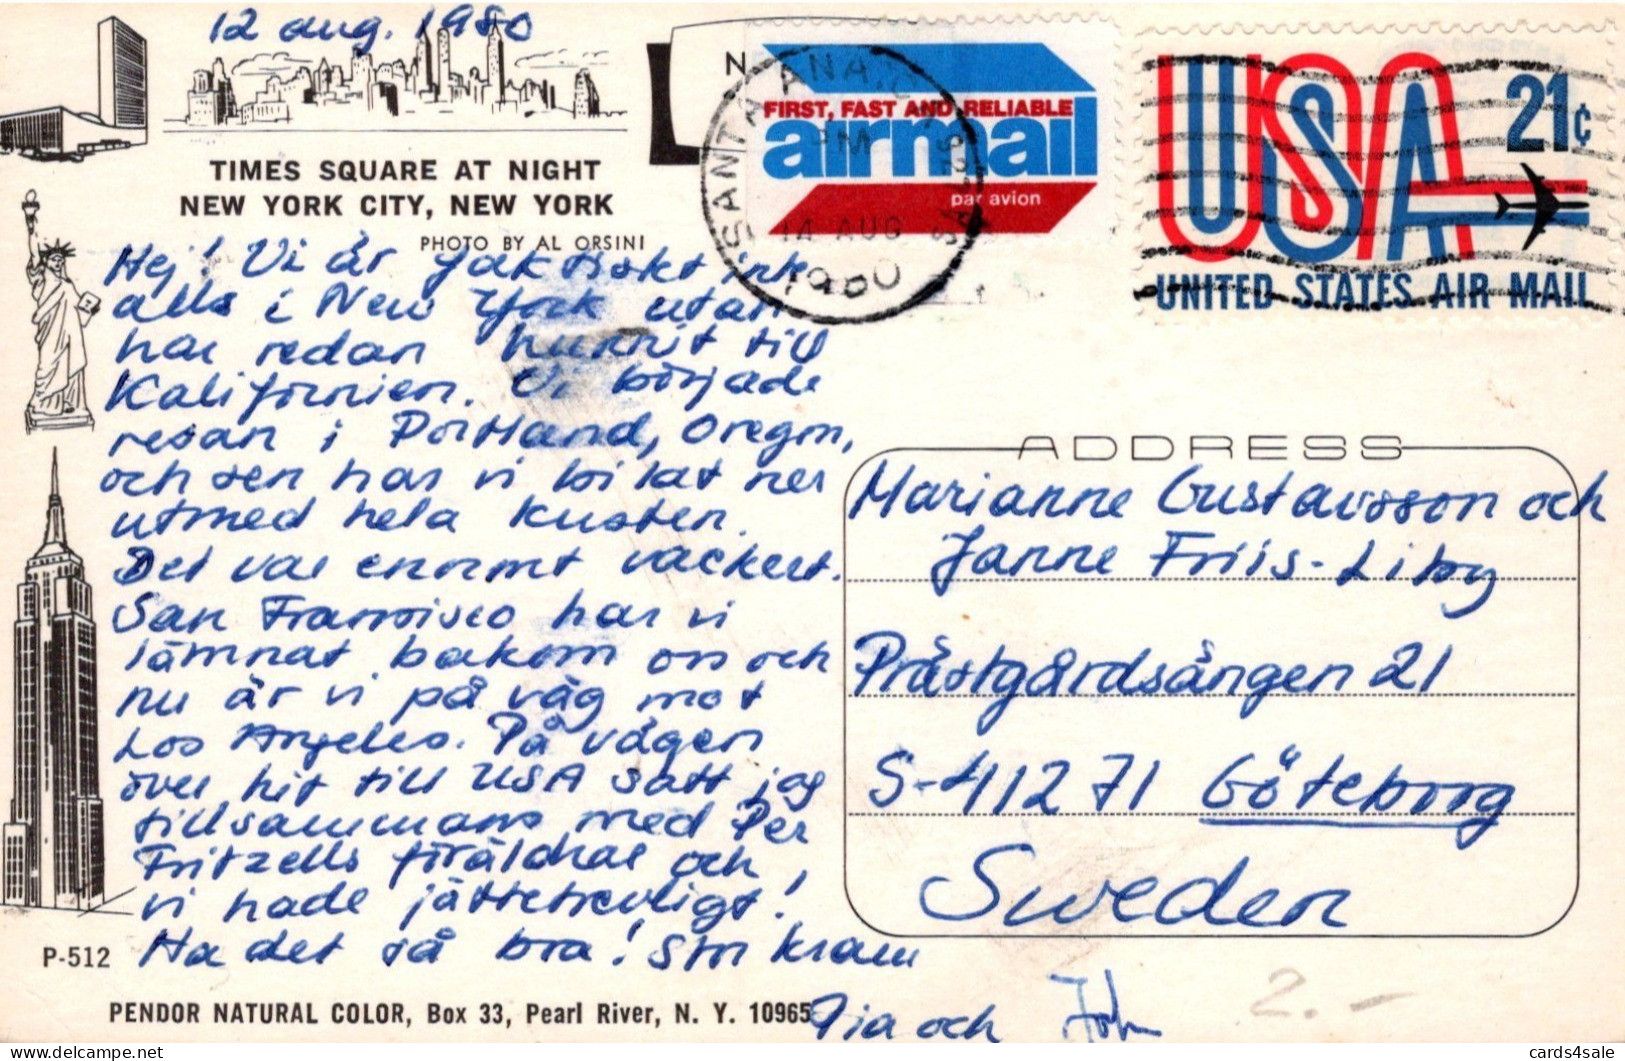 12 aug. 1980
TIMES SQUARE AT NIGHT
NEW YORK CITY, NEW YORK
PHOTO BY AL ORSINI
Hej! Vi är faktiskt inte
alls i New York utan
har redan hunnit till
Kalifornien. Vi började
resan i Portland, Oregon,
och sen har vi bilat ner
utmed hela kusten.
Det var enormt vackert.
San Fransisco har vi
lämnat bakom oss och
nu är vi på väg mot
Los Angeles. På vägen
över hit till USA satt jag
tillsammans med Per
Fritzells föräldrar och
vi hade jättetrevligt!
Ha det så bra! Stor kram
Pia och John
P-512
PENDOR NATURAL COLOR, Box 33, Pearl River, N. Y. 10965
N
SANTA ANA, C
PM
14 AUG
1980
FIRST, FAST AND RELIABLE
airmail
par avion
USA 21¢
UNITED STATES AIR MAIL
ADDRESS
Marianne Gustavsson och
Janne Friis-Liby
Prästgårdsängen 21
S-412 71 Göteborg
Sweden
2.-
cards4sale